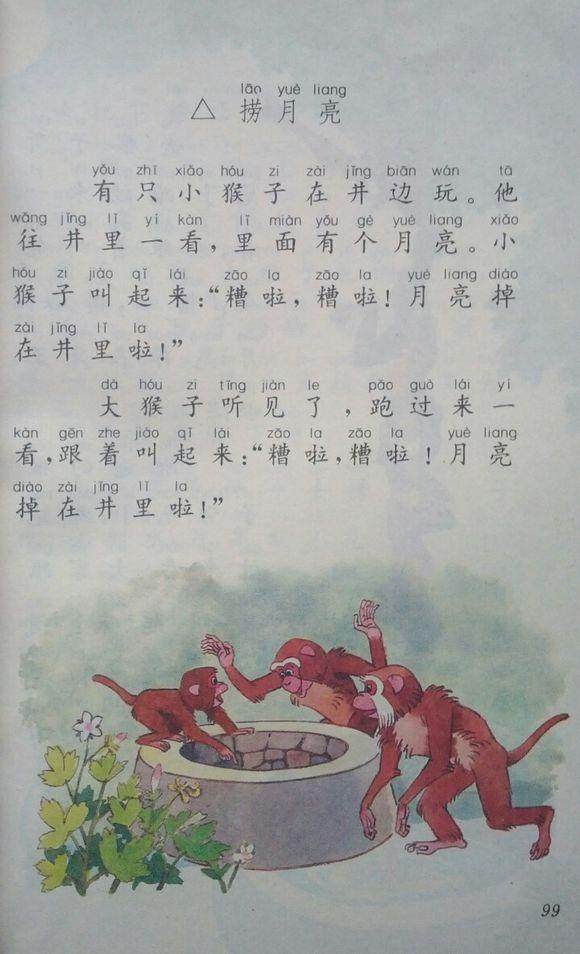 lāo yuè liang
△ 捞月亮
yǒu zhī xiǎo hóu zi zài jǐng biān wán tā
有只小猴子在井边玩。他
wǎng jǐng lǐ yí kàn lǐ miàn yǒu gè yuè liang xiǎo
往井里一看，里面有个月亮。小
hóu zi jiào qǐ lái zāo la zāo la yuè liang diào
猴子叫起来：“糟啦，糟啦！月亮掉
zài jǐng lǐ la
在井里啦！”
dà hóu zi tīng jiàn le pǎo guò lái yí
大猴子听见了，跑过来一
kàn gēn zhe jiào qǐ lái zāo la zāo la yuè liang
看，跟着叫起来：“糟啦，糟啦！月亮
diào zài jǐng lǐ la
掉在井里啦！”
99